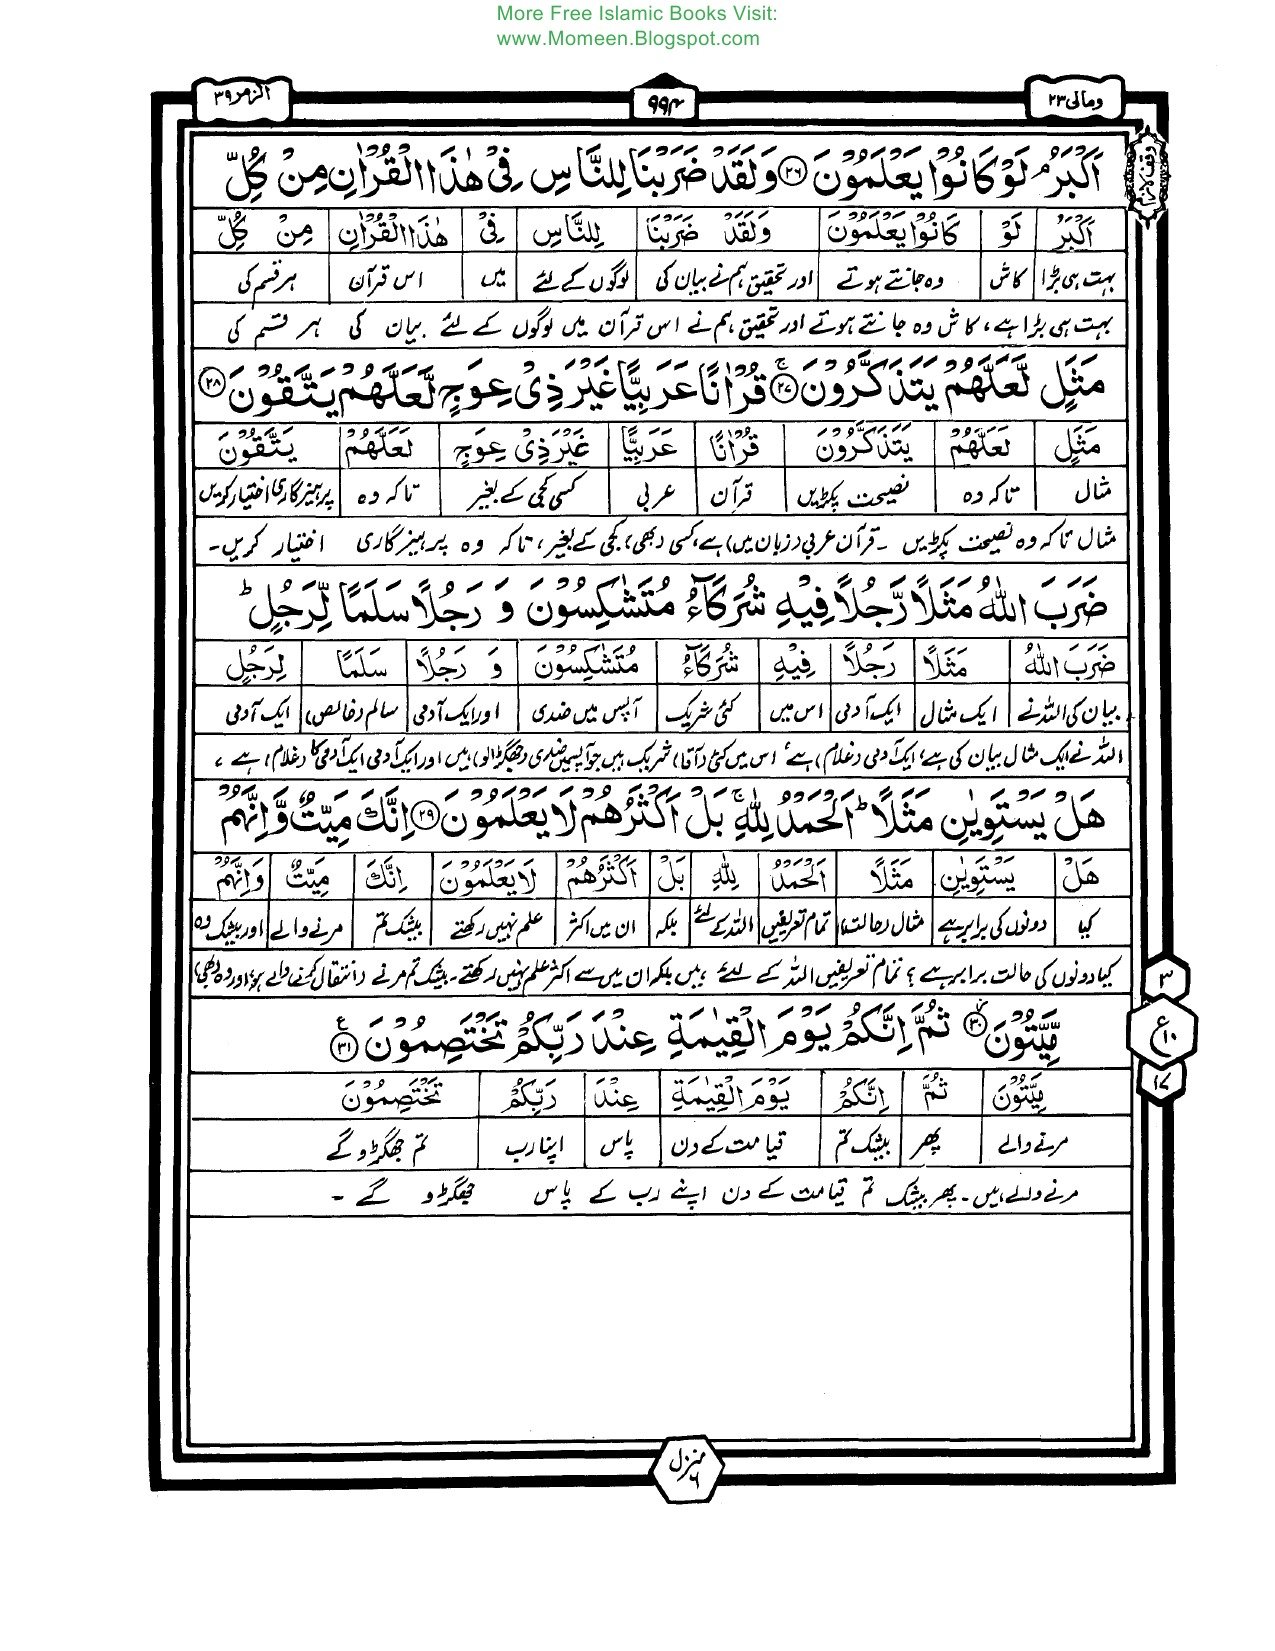 More Free Islamic Books Visit:
www.Momeen.Blogspot.com
ومالی ٢٣
٩٩٤
الزمر ٣٩
وقف لازم
اَكْبَرُ ۘ لَوْ كَانُوْا يَعْلَمُوْنَ ﴿٢٦﴾ وَلَقَدْ ضَرَبْنَا لِلنَّاسِ فِىْ هٰذَا الْقُرْاٰنِ مِنْ كُلِّ
اَكْبَرُ لَوْ كَانُوْا يَعْلَمُوْنَ وَلَقَدْ ضَرَبْنَا لِلنَّاسِ فِىْ هٰذَا الْقُرْاٰنِ مِنْ كُلِّ
بہت ہی بڑا کاش وہ جانتے ہوتے اور تحقیق ہم نے بیان کی لوگوں کے لئے میں اس قرآن ہر قسم کی
بہت ہی بڑا ہے، کاش وہ جانتے ہوتے اور تحقیق ہم نے اس قرآن میں لوگوں کے لئے بیان کی ہر قسم کی
مَثَلٍ لَّعَلَّهُمْ يَتَذَكَّرُوْنَ ﴿٢٧﴾ۚ قُرْاٰنًا عَرَبِيًّا غَيْرَ ذِىْ عِوَجٍ لَّعَلَّهُمْ يَتَّقُوْنَ ﴿٢٨﴾
مَثَلٍ لَعَلَّهُمْ يَتَذَكَّرُوْنَ قُرْاٰنًا عَرَبِيًّا غَيْرَ ذِىْ عِوَجٍ لَعَلَّهُمْ يَتَّقُوْنَ
مثال تاکہ وہ نصیحت پکڑیں قرآن عربی کسی کجی کے بغیر تاکہ وہ پرہیزگاری اختیار کریں
مثال تاکہ وہ نصیحت پکڑیں ۔ قرآن عربی (زبان میں) ہے، کسی (بھی) کجی کے بغیر، تاکہ وہ پرہیزگاری اختیار کریں۔
ضَرَبَ اللّٰهُ مَثَلًا رَّجُلًا فِيْهِ شُرَكَآءُ مُتَشٰكِسُوْنَ وَ رَجُلًا سَلَمًا لِّرَجُلٍ ؕ
ضَرَبَ اللّٰهُ مَثَلًا رَجُلًا فِيْهِ شُرَكَآءُ مُتَشٰكِسُوْنَ وَ رَجُلًا سَلَمًا لِرَجُلٍ
بیان کی اللہ نے ایک مثال ایک آدمی اس میں کئی شریک آپس میں ضدی اور ایک آدمی سالم (خالص) ایک آدمی
اللہ نے ایک مثال بیان کی ہے، ایک آدمی (غلام) ہے، اس میں کئی (آقا) شریک ہیں جو آپس میں ضدی (جھگڑالو) ہیں اور ایک آدمی ایک آدمی کا (غلام) ہے،
هَلْ يَسْتَوِيٰنِ مَثَلًا ؕ اَلْحَمْدُ لِلّٰهِ ۚ بَلْ اَكْثَرُهُمْ لَا يَعْلَمُوْنَ ﴿٢٩﴾ اِنَّكَ مَيِّتٌ وَّاِنَّهُمْ
هَلْ يَسْتَوِيٰنِ مَثَلًا اَلْحَمْدُ لِلّٰهِ بَلْ اَكْثَرُهُمْ لَا يَعْلَمُوْنَ اِنَّكَ مَيِّتٌ وَاِنَّهُمْ
کیا دونوں کی برابر ہے مثال (حالت) تمام تعریفیں اللہ کے لئے بلکہ ان میں اکثر علم نہیں رکھتے بیشک تم مرنے والے اور بیشک وہ
کیا دونوں کی حالت برابر ہے؟ تمام تعریفیں اللہ کے لئے ہیں بلکہ ان میں سے اکثر علم نہیں رکھتے۔ بیشک تم مرنے (انتقال کرنے) والے ہو، اور وہ (بھی)
مَّيِّتُوْنَ ﴿٣٠﴾ؗ ثُمَّ اِنَّكُمْ يَوْمَ الْقِيٰمَةِ عِنْدَ رَبِّكُمْ تَخْتَصِمُوْنَ ﴿٣١﴾ ع
مَيِّتُوْنَ ثُمَّ اِنَّكُمْ يَوْمَ الْقِيٰمَةِ عِنْدَ رَبِّكُمْ تَخْتَصِمُوْنَ
مرنے والے پھر بیشک تم قیامت کے دن پاس اپنا رب تم جھگڑو گے
مرنے والے ہیں۔ پھر بیشک تم قیامت کے دن اپنے رب کے پاس جھگڑو گے ۔
٣
ع ١٠
١٧
منزل ٦